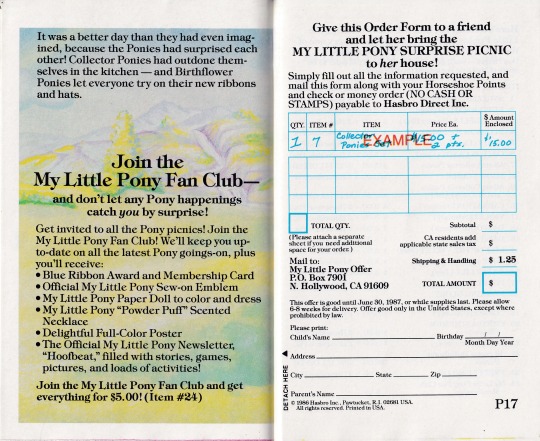 It was a better day than they had even imag-
ined, because the Ponies had surprised each
other! Collector Ponies had outdone them-
selves in the kitchen — and Birthflower
Ponies let everyone try on their new ribbons
and hats.
Join the
My Little Pony Fan Club—
and don't let any Pony happenings
catch you by surprise!
Get invited to all the Pony picnics! Join the
My Little Pony Fan Club! We'll keep you up-
to-date on all the latest Pony goings-on, plus
you'll receive:
• Blue Ribbon Award and Membership Card
• Official My Little Pony Sew-on Emblem
• My Little Pony Paper Doll to color and dress
• My Little Pony "Powder Puff" Scented
Necklace
• Delightful Full-Color Poster
• The Official My Little Pony Newsletter,
"Hoofbeat," filled with stories, games,
pictures, and loads of activities!
Join the My Little Pony Fan Club and get
everything for $5.00! (Item #24)
Give this Order Form to a friend
and let her bring the
MY LITTLE PONY SURPRISE PICNIC
to her house!
Simply fill out all the information requested, and
mail this form along with your Horseshoe Points
and check or money order (NO CASH OR
STAMPS) payable to Hasbro Direct Inc.
QTY. ITEM # ITEM Price Ea. $ Amount Enclosed
1 7 Collector Ponies Set $15.00 + 2 pts. $15.00
EXAMPLE
TOTAL QTY.
(Please attach a separate
sheet if you need additional
space for your order.)
Subtotal $
CA residents add
applicable state sales tax $
Mail to:
My Little Pony Offer
P.O. Box 7901
N. Hollywood, CA 91609
Shipping & Handling $ 1.25
TOTAL AMOUNT $
This offer is good until June 30, 1987, or while supplies last. Please allow
6-8 weeks for delivery. Offer good only in the United States, except where
prohibited by law.
Please print:
Child's Name Birthday / /
Month Day Year
Address
City State Zip
Parent's Name
DETACH HERE
© 1986 Hasbro Inc., Pawtucket, R.I. 02861 USA.
All rights reserved. Printed in USA.
P17